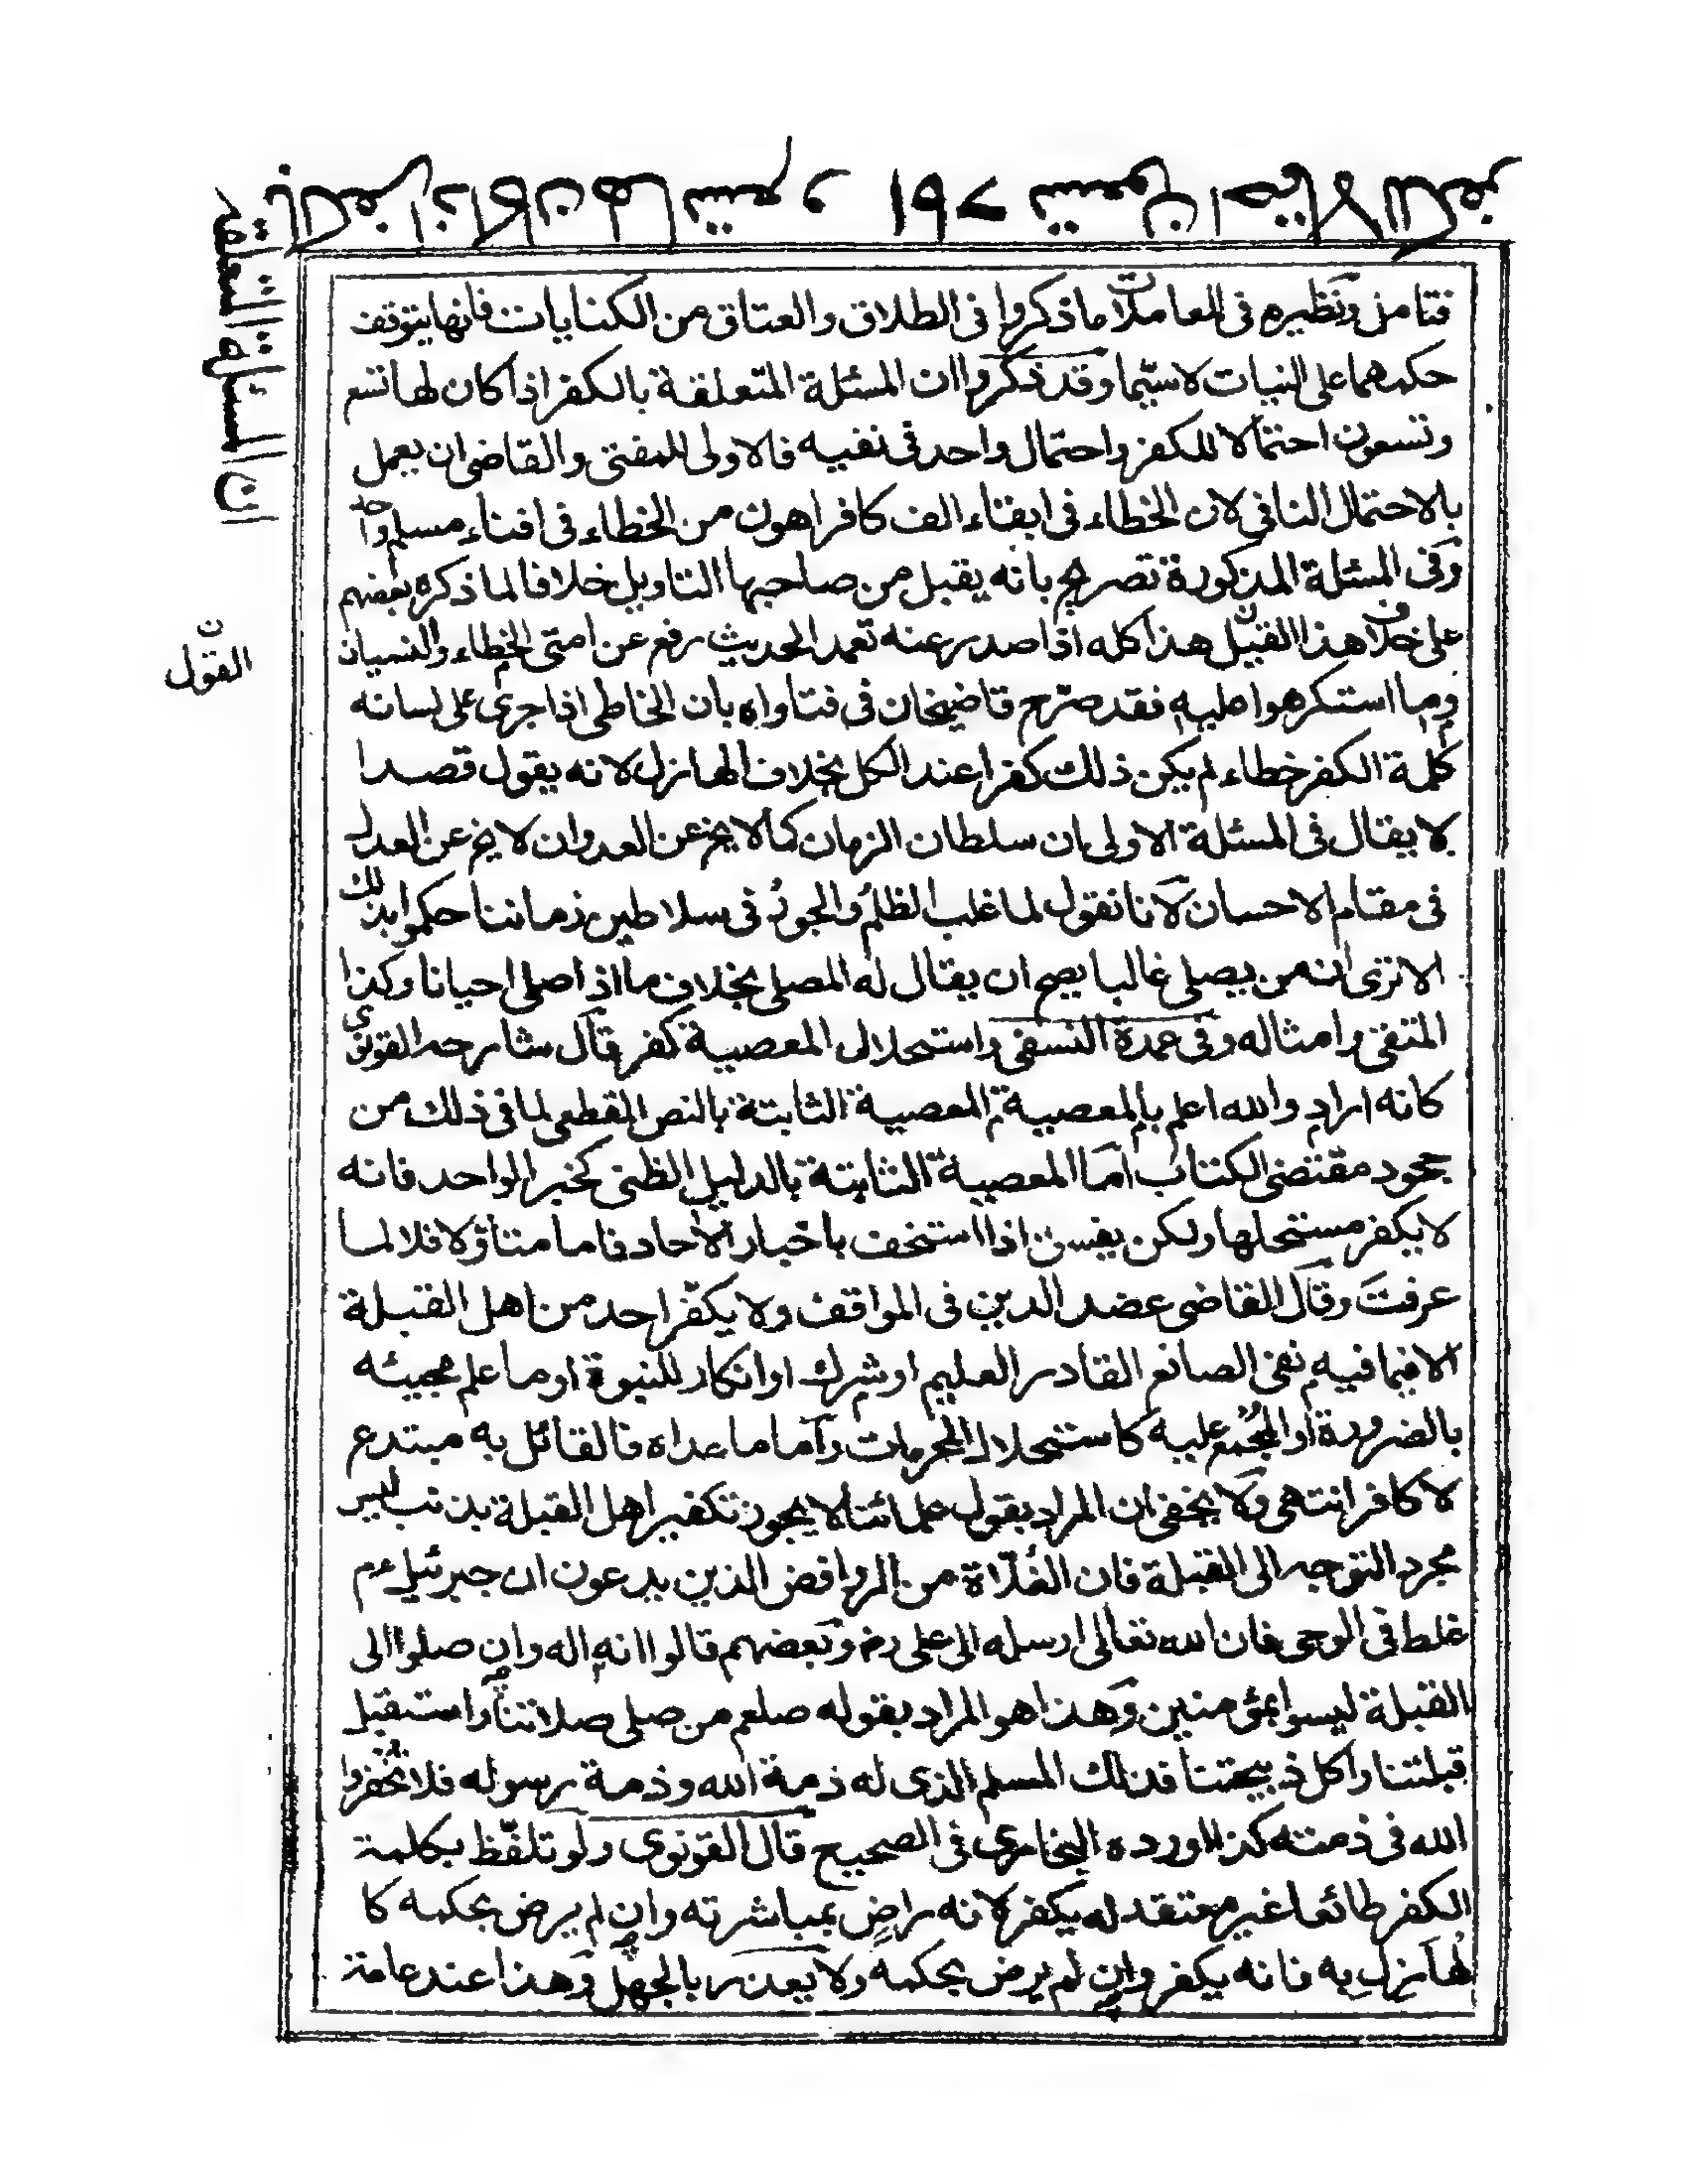 ان المسئلة المتعلقة
بالكفر اذا كان لها تسع و تسعون احتمالا للكفر
فتامل ونظيره فى المعاملات ماذكروا فى الطلاق والعتاق من الكنايات فانها يتوقف
حكمهما على النيات لا سيّما وقد ذكروا ان المسئلة المتعلقة بالكفر اذا كان لها تسع
وتسعون احتمالا للكفر واحتمال واحد فى نفيه فالاولى للمفتى والقاضى ان يعمل
بالاحتمال النافى لان الخطاء فى ابقاء الف كافر اهون من الخطاء فى افناء مسلم واحد
وفى المسئلة المذكورة تصريح بانه يقبل من صاحبها التاويل خلافا لما ذكره بعضهم
على خلاف هذا القبيل هذا كله اذا صدر عنه تعمد الحديث رفع عن امتى الخطاء والنسيان
القول
وما استكرهوا عليه فقد صرّح قاضيخان فى فتاواه بان الخاطى اذا جرى على لسانه
كلمة الكفر خطاء لم يكن ذلك كفرا عند الكل بخلاف الهازل لانه يقول قصدا
لا يقال فى المسئلة الاولى ان سلطان الزمان كما لا يخ عن العدوان لا يخ عن العدل
فى مقام الاحسان لانا نقول لما غلب الظلم والجور فى سلاطين زماننا حكموا بذلك
الا ترى ان من يصلى غالبا يصح ان يقال له المصلى بخلاف ما اذا صلى احيانا وكذا
المتقى وامثاله وفى عمدة النسفى واستحلال المعصية كفر قال شارحه القونوى
كانه اراد والله اعلم بالمعصية المعصية الثابتة بالنص القطعى لما فى ذلك من
جحود مقتضى الكتاب اما المعصية الثابتة بالدليل الظنى كخبر الواحد فانه
لا يكفر مستحلها ولكن يفسق اذا استخف باخبار الآحاد فاما متاؤلا فلا لما
عرفت وقال القاضى عضد الدين فى المواقف ولا يكفّر احد من اهل القبلة
الا فيما فيه نفى الصانع القادر العليم او شرك او انكار للنبوة او ما علم مجيئه
بالضرورة او المجمع عليه كاستحلال المحرمات واما ما عداه فالقائل به مبتدع
لا كافر انتهى ولا يخفى ان المراد بقول علمائنا لا يجوز تكفير اهل القبلة بذنب ليس
مجرد التوجه الى القبلة فان الغُلاة من الروافض الذين يدعون ان جبرئيل عم
غلط فى الوحى فان الله تعالى ارسله الى على رض وبعضهم قالوا انه اله وان صلوا الى
القبلة ليسوا بمؤمنين وهذا هو المراد بقوله صلعم من صلى صلاتنا واستقبل
قبلتنا واكل ذبيحتنا فذلك المسلم الذى له ذمة الله وذمة رسوله فلا تخفروا
الله فى ذمته كذا اورده البخارى فى الصحيح قال القونوى ولو تلفّظ بكلمة
الكفر طائعا غير معتقد له يكفر لانه راضٍ بمباشرته وان لم يرض بحكمه كا
لهازل به فانه يكفر وان لم يرض بحكمه ولا يعذر بالجهل وهذا عند عامة